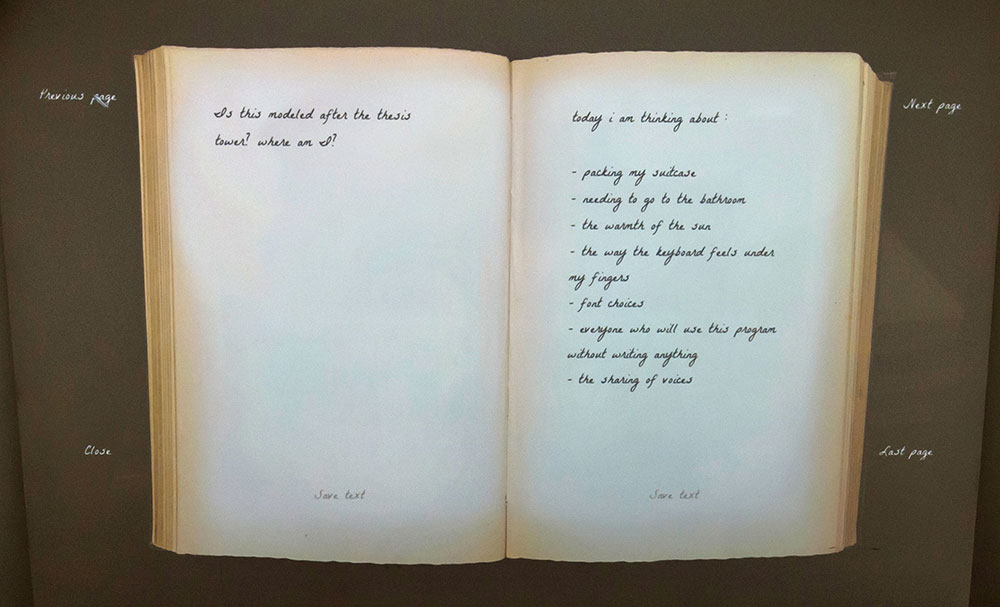 Previous page
Next page
Is this modeled after the thesis
tower? where am I?
Save text
today i am thinking about :
- packing my suitcase
- needing to go to the bathroom
- the warmth of the sun
- the way the keyboard feels under
my fingers
- font choices
- everyone who will use this program
without writing anything
- the sharing of voices
Save text
Close
Last page